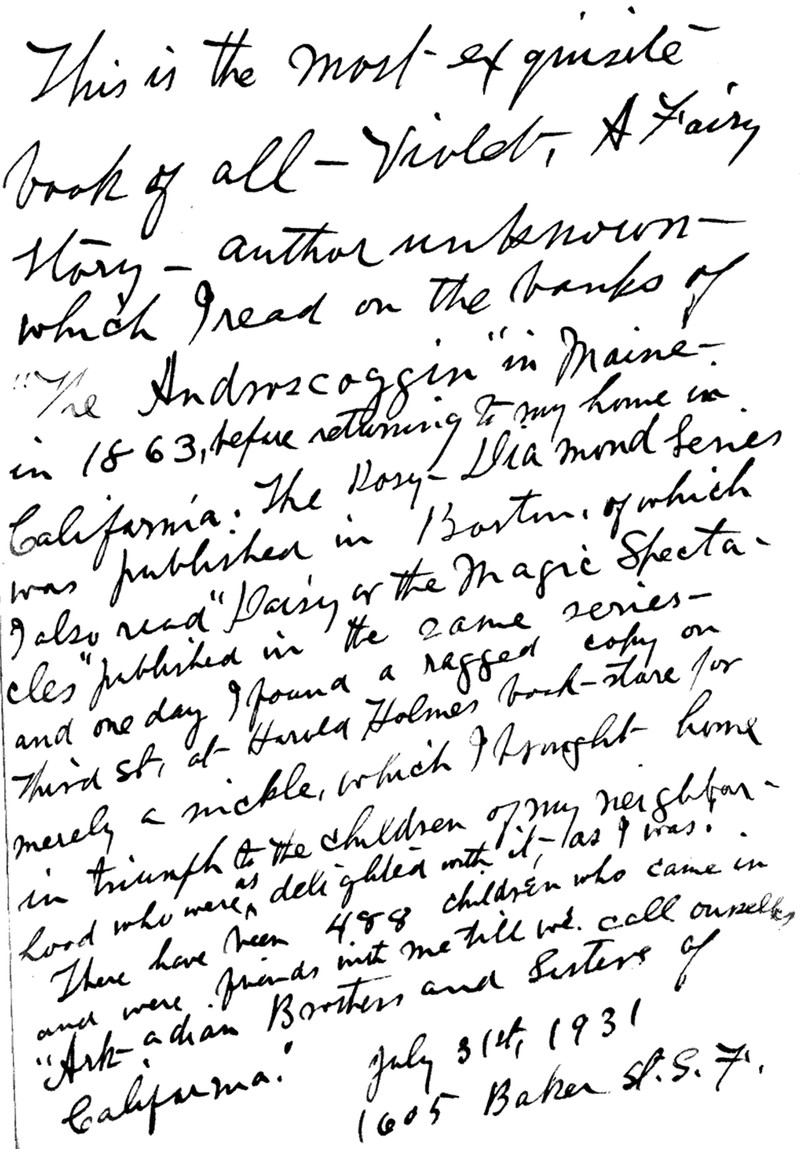 This is the most exquisite
book of all – Violet, A Fairy
Story – author unknown –
which I read on the banks of
"The Androscoggin" in Maine –
in 1863, before returning to my home in
California. The Rosy-Diamond Series
was published in Boston, of which
I also read "Daisy or the Magic Specta-
cles" published in the same series –
and one day I found a ragged copy on
Third St, at Harold Holmes book-store for
merely a nickle, which I brought home
in triumph to the children of my neighbor-
hood who were as delighted with it, as I was.
There have been 488 children who came in
and were friends with me till we call ourselves
"Ark-adian Brothers and Sisters of
California."
July 31st, 1931
1605 Baker St. S. F.